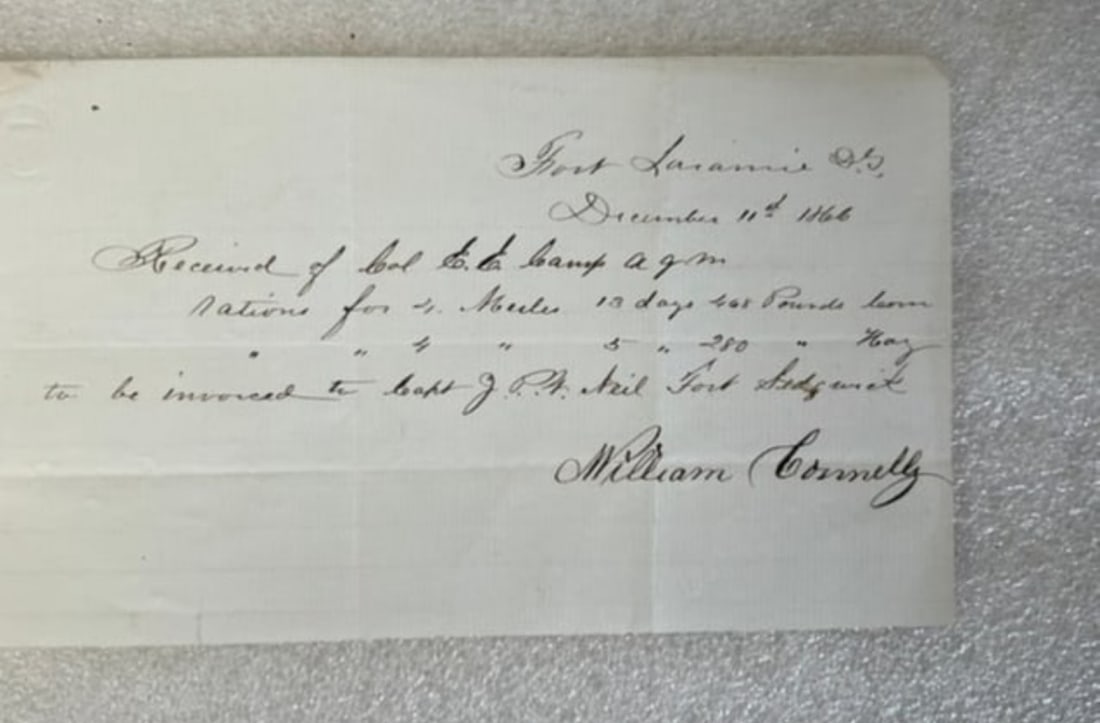 Fort Laramie D.T.
December 11th 1866
Received of Col E. E. Camp A q m
rations for 4 Mules 13 days 468 Pounds Corn
" " 4 " 5 " 280 " Hay
to be invoiced to Capt J. P. W. Neil Fort Sedgwick
William Connelly